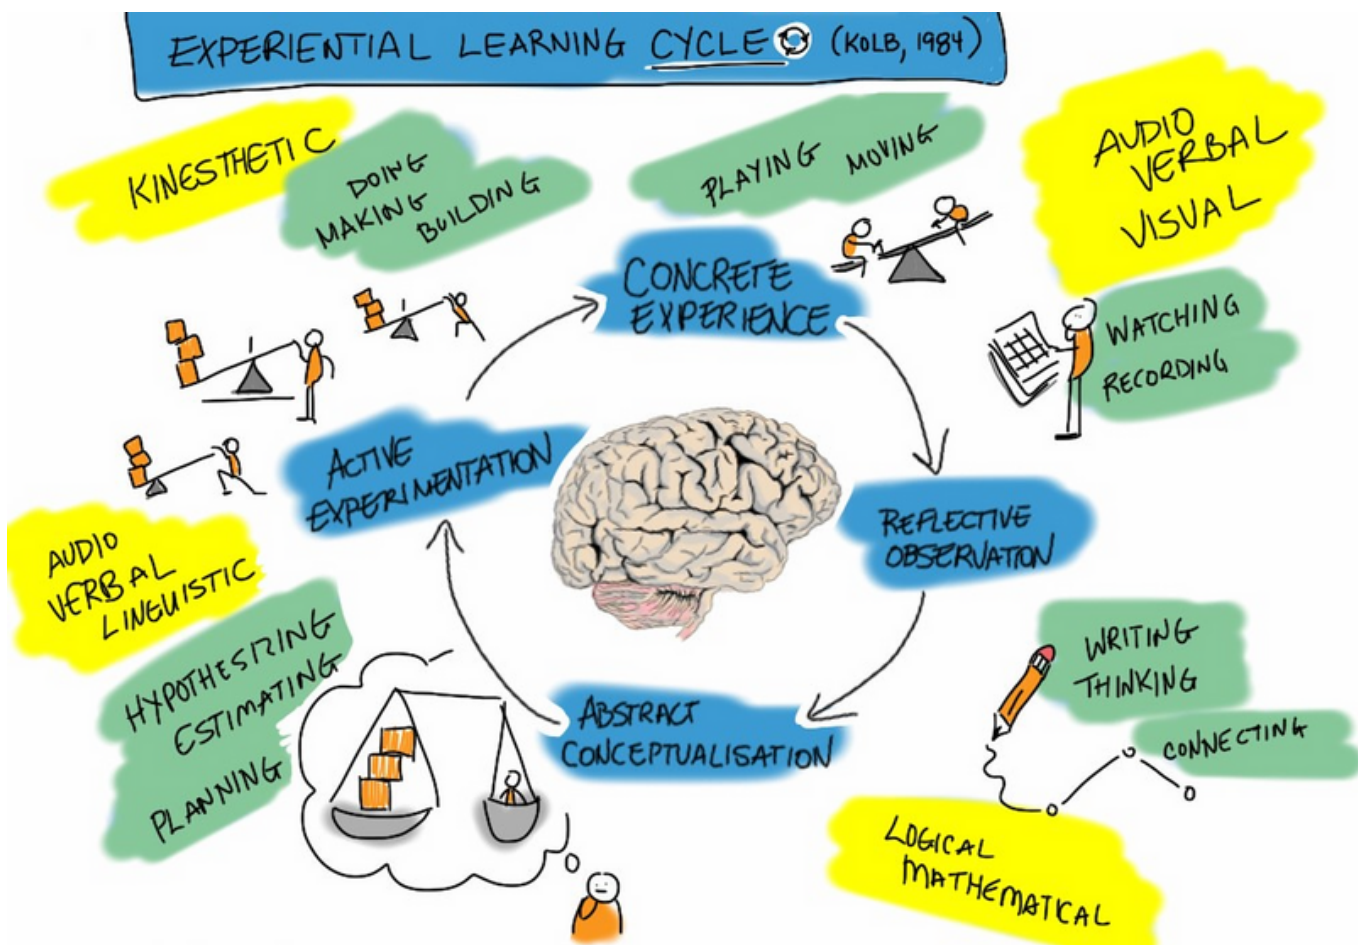 EXPERIENTIAL LEARNING CYCLE (KOLB, 1984)
KINESTHETIC
DOING
MAKING
BUILDING
PLAYING MOVING
AUDIO
VERBAL
VISUAL
CONCRETE
EXPERIENCE
WATCHING
RECORDING
ACTIVE
EXPERIMENTATION
REFLECTIVE
OBSERVATION
AUDIO
VERBAL
LINGUISTIC
HYPOTHESIZING
ESTIMATING
PLANNING
ABSTRACT
CONCEPTUALISATION
WRITING
THINKING
CONNECTING
LOGICAL
MATHEMATICAL